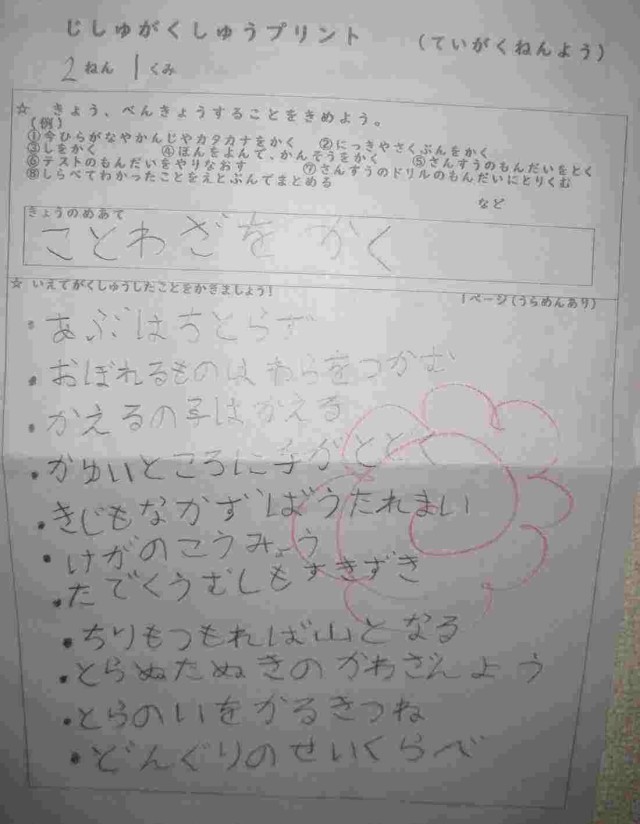 じしゅがくしゅうプリント
(ていがくねんよう)
2ねん 1くみ
☆ きょう、べんきょうすることをきめよう。
(例)
①今ひらがなやかんじやカタカナをかく ②にっきやさくぶんをかく
③しをかく ④ほんをよんで、かんそうをかく ⑤さんすうのもんだいをとく
⑥テストのもんだいをやりなおす ⑦さんすうのドリルのもんだいにとりくむ
⑧しらべてわかったことをえとぶんでまとめる
など
きょうのめあて
ことわざを かく
☆ いえでがくしゅうしたことをかきましょう!
1ページ(うらめんあり)
・あぶはちとらず
・おぼれるものはわらをつかむ
・かえるの子はかえる
・かゆいところに手がとどく
・きじもなかずばうたれまい
・けがのこうみょう
・たでくうむしもすきずき
・ちりもつもれば山となる
・とらぬたぬきのかわざんよう
・とらのいをかるきつね
・どんぐりのせいくらべ